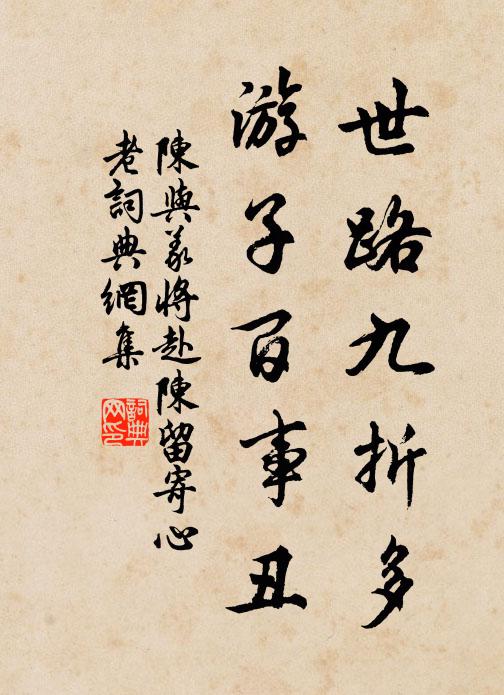 世路九折多
游子百事丑
陳與義將赴陳留寄心
老詞典網集
詞典
网印